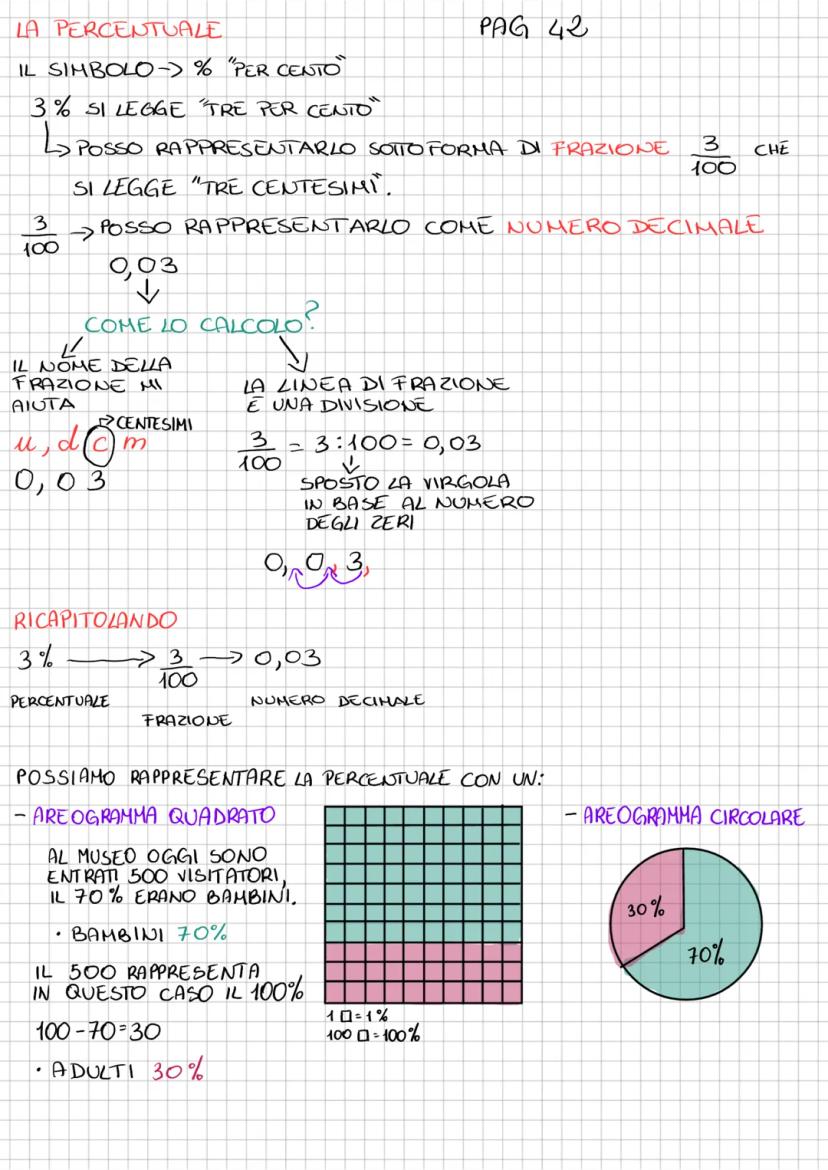 LA PERCENTUALE PAG 42
IL SIMBOLO -> % "PER CENTO"
3% SI LEGGE "TRE PER CENTO"
↳ POSSO RAPPRESENTARLO SOTTOFORMA DI FRAZIONE 3/100 CHE
SI LEGGE "TRE CENTESIMI".
3/100 → POSSO RAPPRESENTARLO COME NUMERO DECIMALE
0,03
↓
COME LO CALCOLO?
IL NOME DELLA
FRAZIONE MI
AIUTA
→ CENTESIMI
u, d c m
0,03
LA LINEA DI FRAZIONE
È UNA DIVISIONE
3/100 = 3:100 = 0,03
↓
SPOSTO LA VIRGOLA
IN BASE AL NUMERO
DEGLI ZERI
0, 0, 3,
RICAPITOLANDO
3% → 3/100 → 0,03
PERCENTUALE
FRAZIONE
NUMERO DECIMALE
POSSIAMO RAPPRESENTARE LA PERCENTUALE CON UN:
- AREOGRAMMA QUADRATO
AL MUSEO OGGI SONO
ENTRATI 500 VISITATORI,
IL 70% ERANO BAMBINI.
• BAMBINI 70%
IL 500 RAPPRESENTA
IN QUESTO CASO IL 100%
100-70=30
• ADULTI 30%
1 □ = 1%
100 □ = 100%
- AREOGRAMMA CIRCOLARE
30%
70%